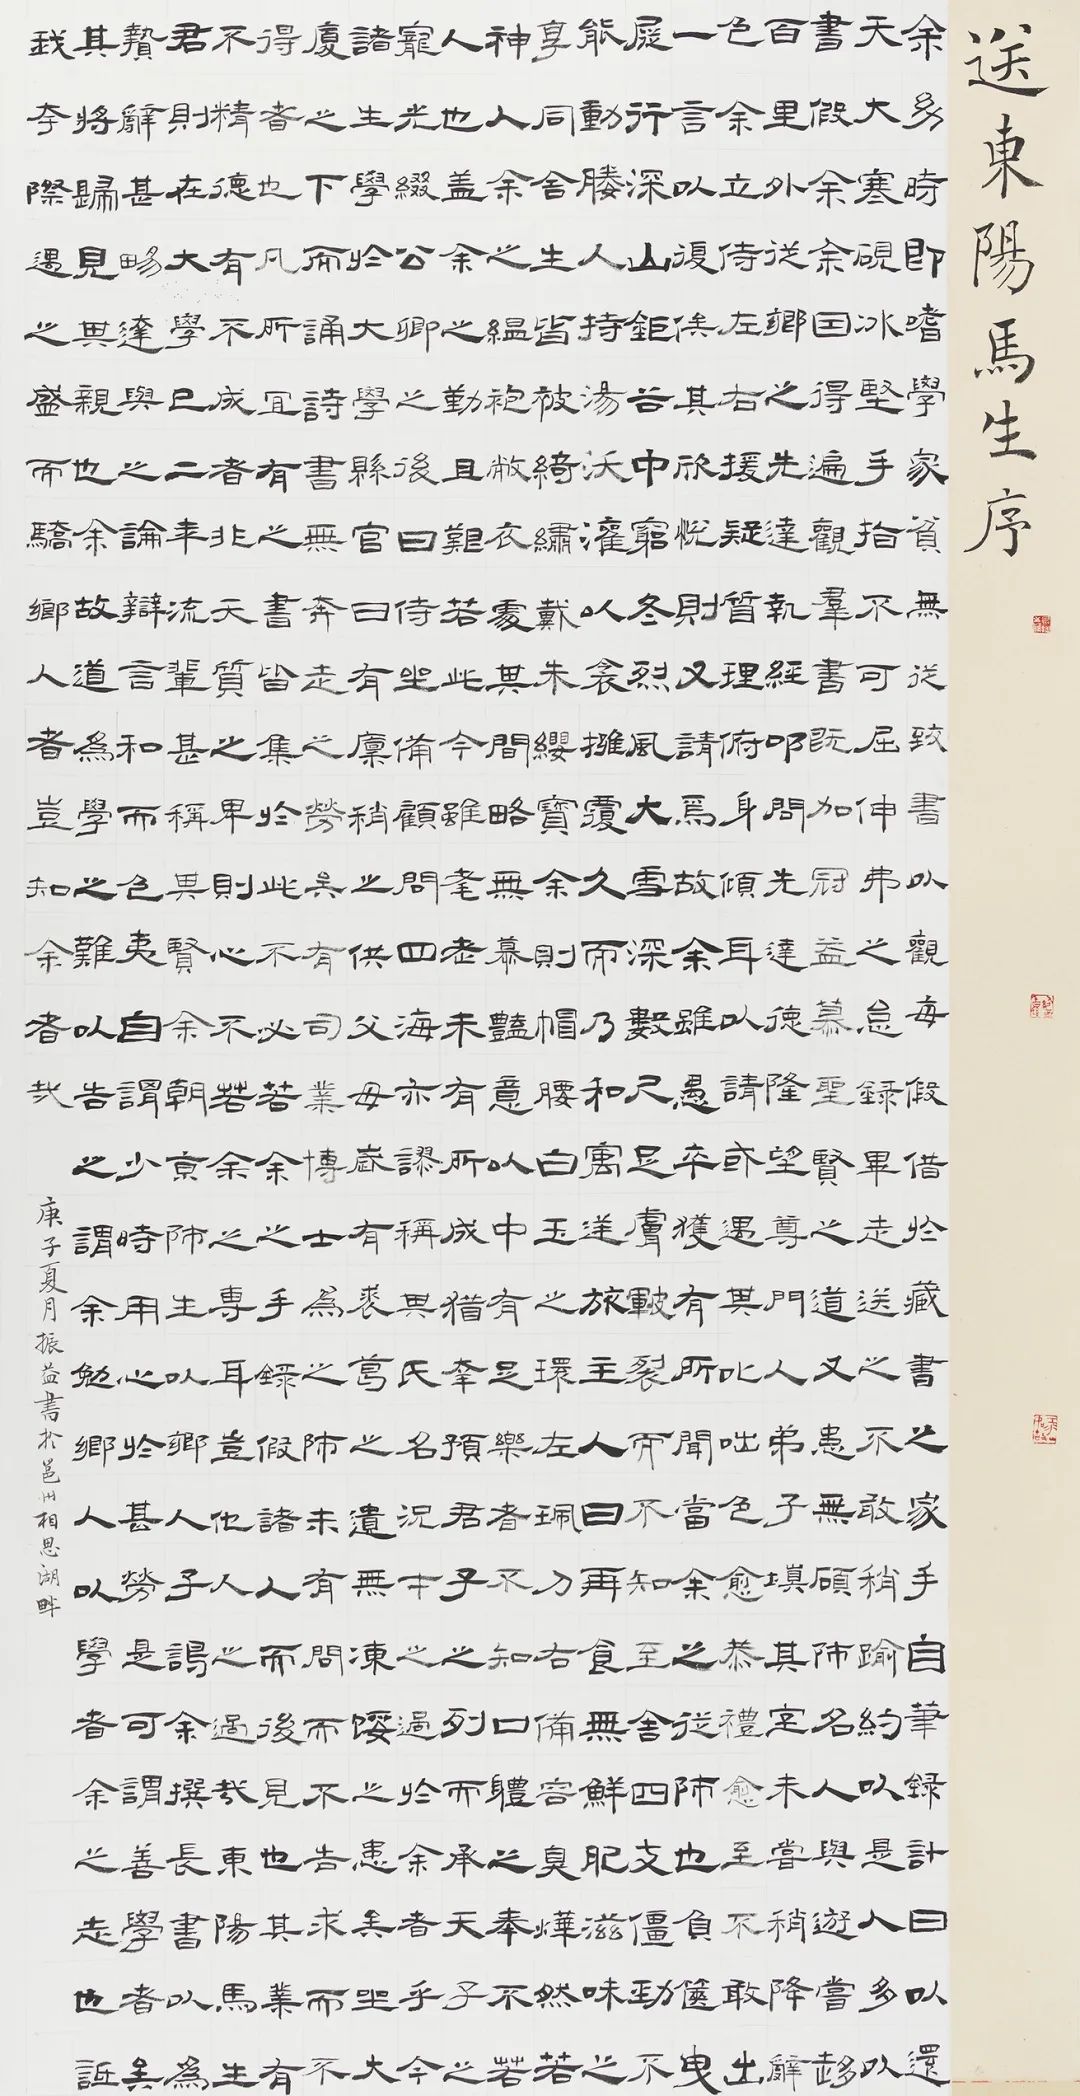 送東陽馬生序
余幼時即嗜學家貧無從致書以觀每假借於藏書之家手自筆録計日以還
天大寒硯冰堅手指不可屈伸弗之怠録畢走送之不敢稍踰約以是人多以
書假余余因得遍觀羣書既加冠益慕聖賢之道又患無碩師名人與遊嘗趍
百里外從鄉之先達執經叩問先達德隆望尊門人弟子填其室未嘗稍降辭
色余立侍左右援疑質理俯身傾耳以請或遇其叱咄色愈恭禮愈至不敢出
一言以復俟其欣悅則又請焉故余雖愚卒獲有所聞當余之從師也負篋曳
屣行深山鉅谷中窮冬烈風大雪深數尺足膚皸裂而不知至舍四支僵勁不
能動媵人持湯沃灌以衾擁覆久而乃和寓逆旅主人曰再食無鮮肥滋味之
享同舍生皆被綺繡戴朱纓寶余則帽腰白玉之環左珮刀右備容臭燁然若
神人余之縕袍敝衣處其間略無慕豔意以中有足樂者不知口體之奉不若
人也蓋余之勤且艱若此今雖耄老未有所成猶幸預君子之列而承天子之
寵光綴公卿之後曰侍坐備顧問四海亦謬稱其氏名況才之過於余者乎今
諸生學於大學縣官日有廩稍之供父母歲有裘葛之遺無凍餒之患矣坐大
廈之下而誦詩書無奔走之勞矣有司業博士為之師未有問而不告求而不
得者也凡所宜有之書皆集於此不必若余之手録假諸人而後見也其業有
不精德有不成者非天質之卑則心不若余之專耳豈他人之過哉東陽馬生
君則在大學已二年流輩甚稱其賢余朝京師生以鄉人子謁余撰長書以為
贄辭甚暢達與之論辯言和而色夷自謂少時用心於甚勞是可謂善學者矣
其將歸見其親也余故道為學之難以告之謂余勉鄉人以學者余之志也詆
我夸際遇之盛而驕鄉人者豈知余者哉
庚子夏月振益書於邕州相思湖畔